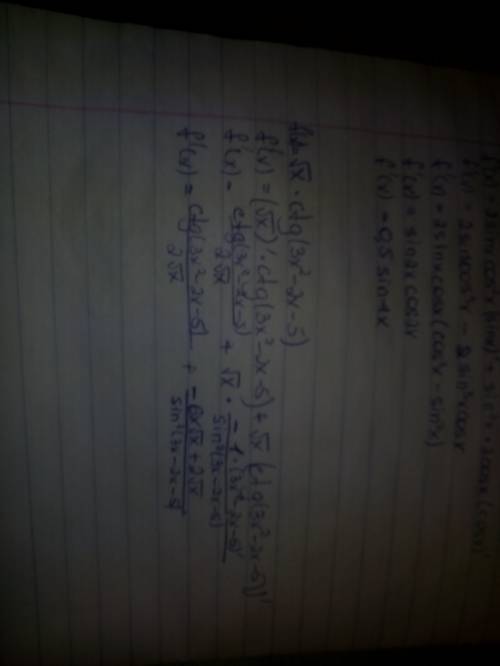 f'(x) = 2 sin x cos³x - 2 sin³x cos x
f'(x) = 2 sin x cos x (cos²x - sin²x)
f'(x) = sin 2x cos 2x
f'(x) = 0,5 sin 4x
f(x) = √x · ctg(3x²-2x-5)
f'(x) = (√x)' · ctg(3x²-2x-5) + √x (ctg(3x²-2x-5))'
f'(x) = ctg(3x²-2x-5) / 2√x + √x · -1·(3x²-2x-5)' / sin²(3x-2x-5)
f'(x) = ctg(3x²-2x-5) / 2√x + -6x√x + 2√x / sin²(3x-2x-5)